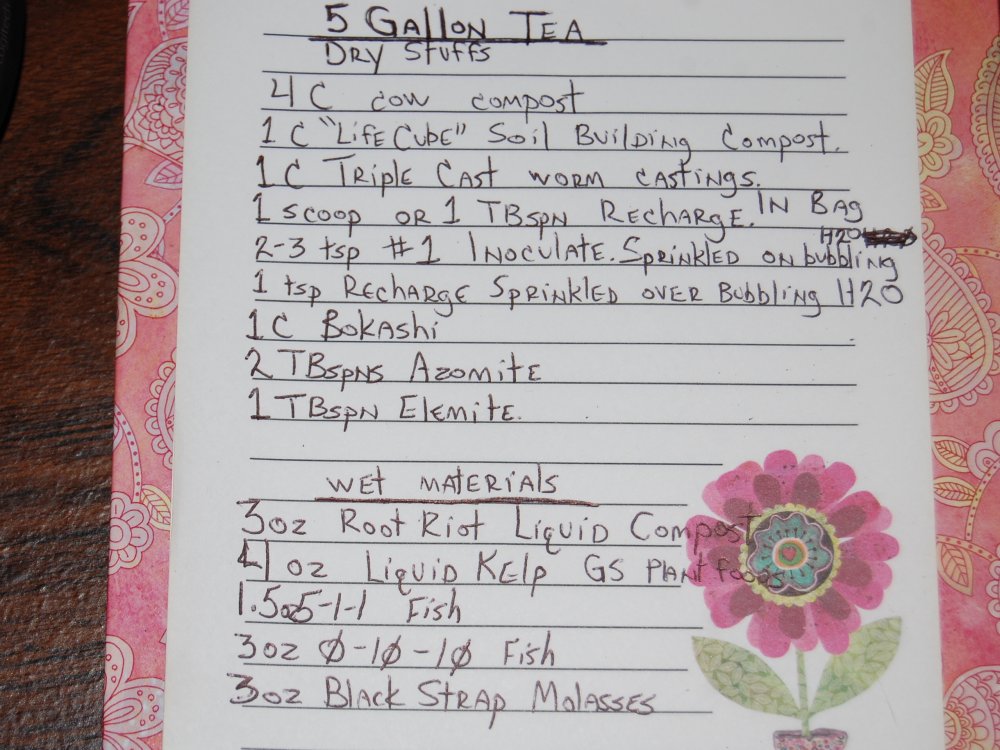 5 Gallon Tea
Dry Stuffs
4 C cow compost
1 C "Life Cube" Soil Building Compost.
1 C Triple Cast worm castings.
1 scoop or 1 TBspn Recharge. In Bag
2-3 tsp #1 Inoculate. Sprinkled on bubbling H20
1 tsp Recharge Sprinkled over Bubbling H20
1 C Bokashi
2 TBspns Azomite
1 TBspn Elemite.
wet materials
3oz Root Riot Liquid Compost
4 oz Liquid Kelp GS Plant foods
1.5oz 5-1-1 Fish
3oz Ø-1Ø-1Ø Fish
3oz Black Strap Molasses